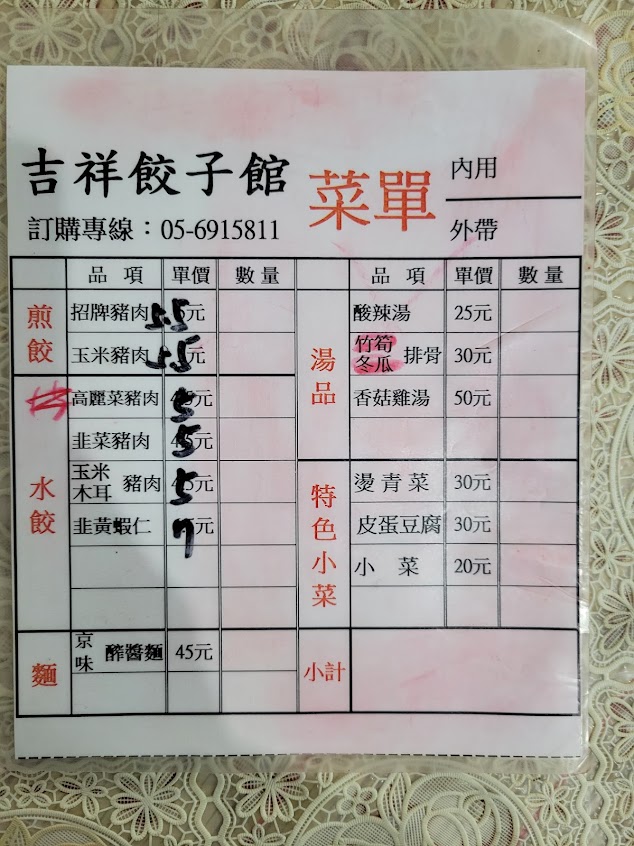 吉祥餃子館 菜單 內用
訂購專線：05-6915811 外帶
品項 單價 數量 品項 單價 數量
煎餃
招牌豬肉 5.5元
玉米豬肉 5.5元
水餃
高麗菜豬肉 5元
韭菜豬肉 5元
玉米木耳 豬肉 5元
韭黃蝦仁 7元
麵
京味 酢醬麵 45元
湯品
酸辣湯 25元
竹筍冬瓜 排骨 30元
香菇雞湯 50元
特色小菜
燙青菜 30元
皮蛋豆腐 30元
小菜 20元
小計